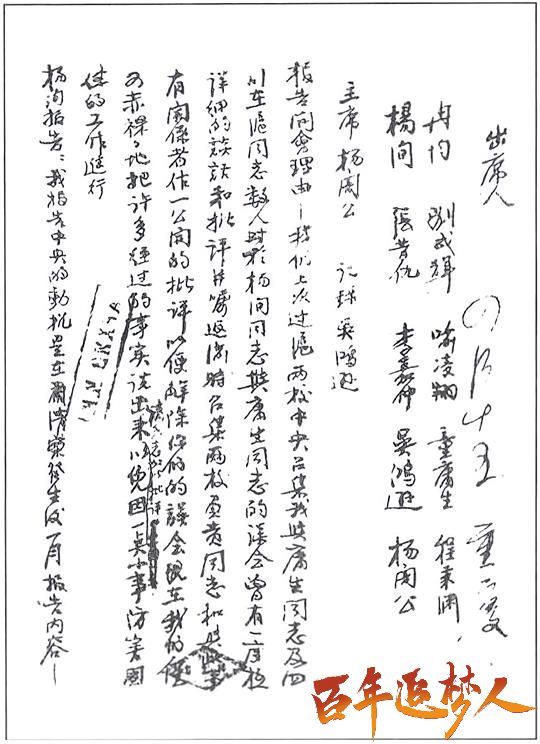 出席人
冉钧 刘成辉 喻凌翔 童庸生 程秉渊
杨洵 张昔仇 李嘉仲 吴鸿逊 杨闇公
主席 杨闇公 记录 吴鸿逊
报告开会理由—我们上次过沪两校中央召集我与庸生同志及四
川在沪同志数人对于杨洵同志与庸生同志的误会曾有一度极
详细的谈话和批评并嘱返渝时召集两校负责同志和与此事
有关系者作一公开的批评以便解除你们的误会现在我们便
可赤裸々地把许多经过的事实谈出来以免因一点小事防害团
体的工作进行
杨洵报告：我报告中央的动机是在
百年追梦人